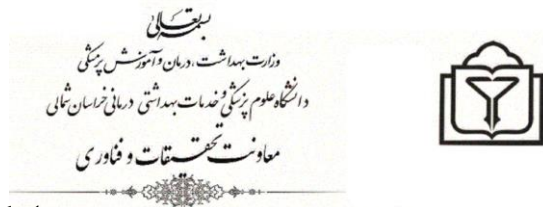 بسمه تعالی
وزارت بهداشت، درمان و آموزش پزشکی
دانشگاه علوم پزشکی و خدمات بهداشتی درمانی خراسان شمالی
معاونت تحقیقات و فناوری